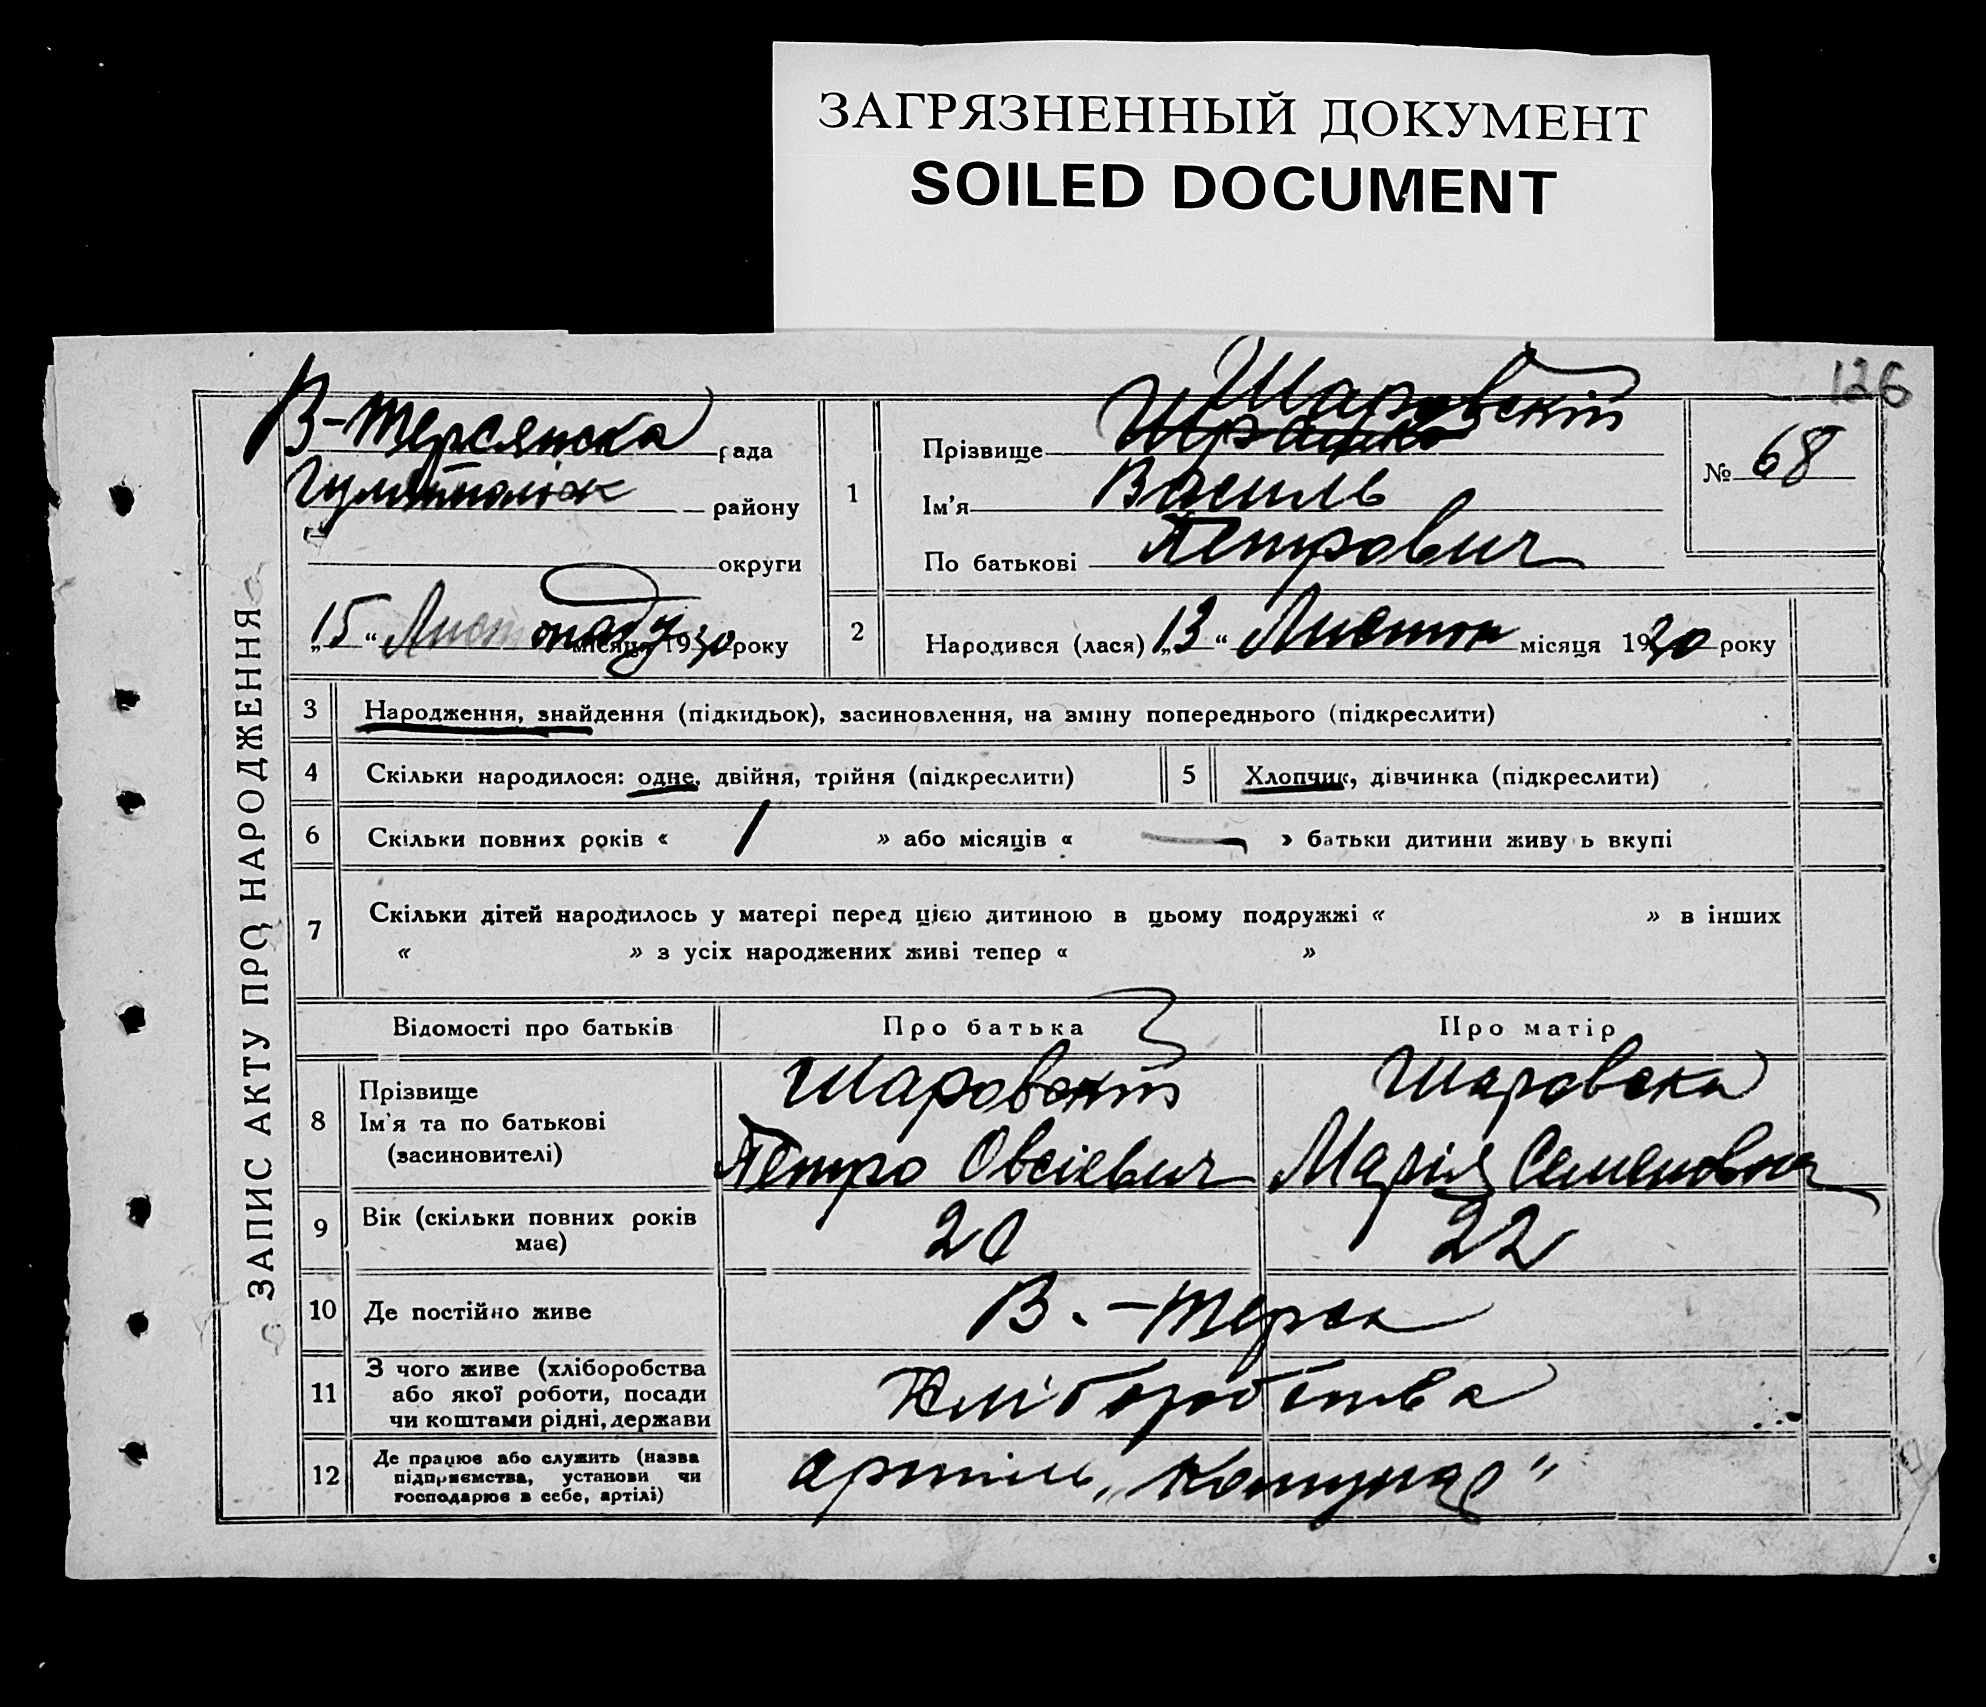 ЗАГРЯЗНЕННЫЙ ДОКУМЕНТ
SOILED DOCUMENT
126
ЗАПИС АКТУ ПРО НАРОДЖЕННЯ
В-Терсянска рада
району
округи
„15“ Листопаду місяця 1930 року
1
Прізвище Шаровскій
Ім'я Василь
По батькові Петрович
№ 68
2 Народився (лася) „13“ Листоп місяця 1930 року
3 Народження, знайдення (підкидьок), засиновлення, на зміну попереднього (підкреслити)
4 Скільки народилося: одне, двійня, трійня (підкреслити)
5 Хлопчик, дівчинка (підкреслити)
6 Скільки повних років « 1 » або місяців « — » батьки дитини живу ь вкупі
7 Скільки дітей народилось у матері перед цією дитиною в цьому подружжі « » в інших
« » з усіх народжених живі тепер « »
Відомості про батьків Про батька Про матір
8 Прізвище
Ім'я та по батькові
(засиновителі)
Шаровскій
Петро Овсієвич
Шаровска
Марія Семеновна
9 Вік (скільки повних років
має)
20 22
10 Де постійно живе В.-Терса
11 З чого живе (хліборобства
або якої роботи, посади
чи коштами рідні, держави
Хліборобства
12 Де працює або служить (назва
підприємства, установи чи
господарює в себе, артілі)
артіль „Комунар"